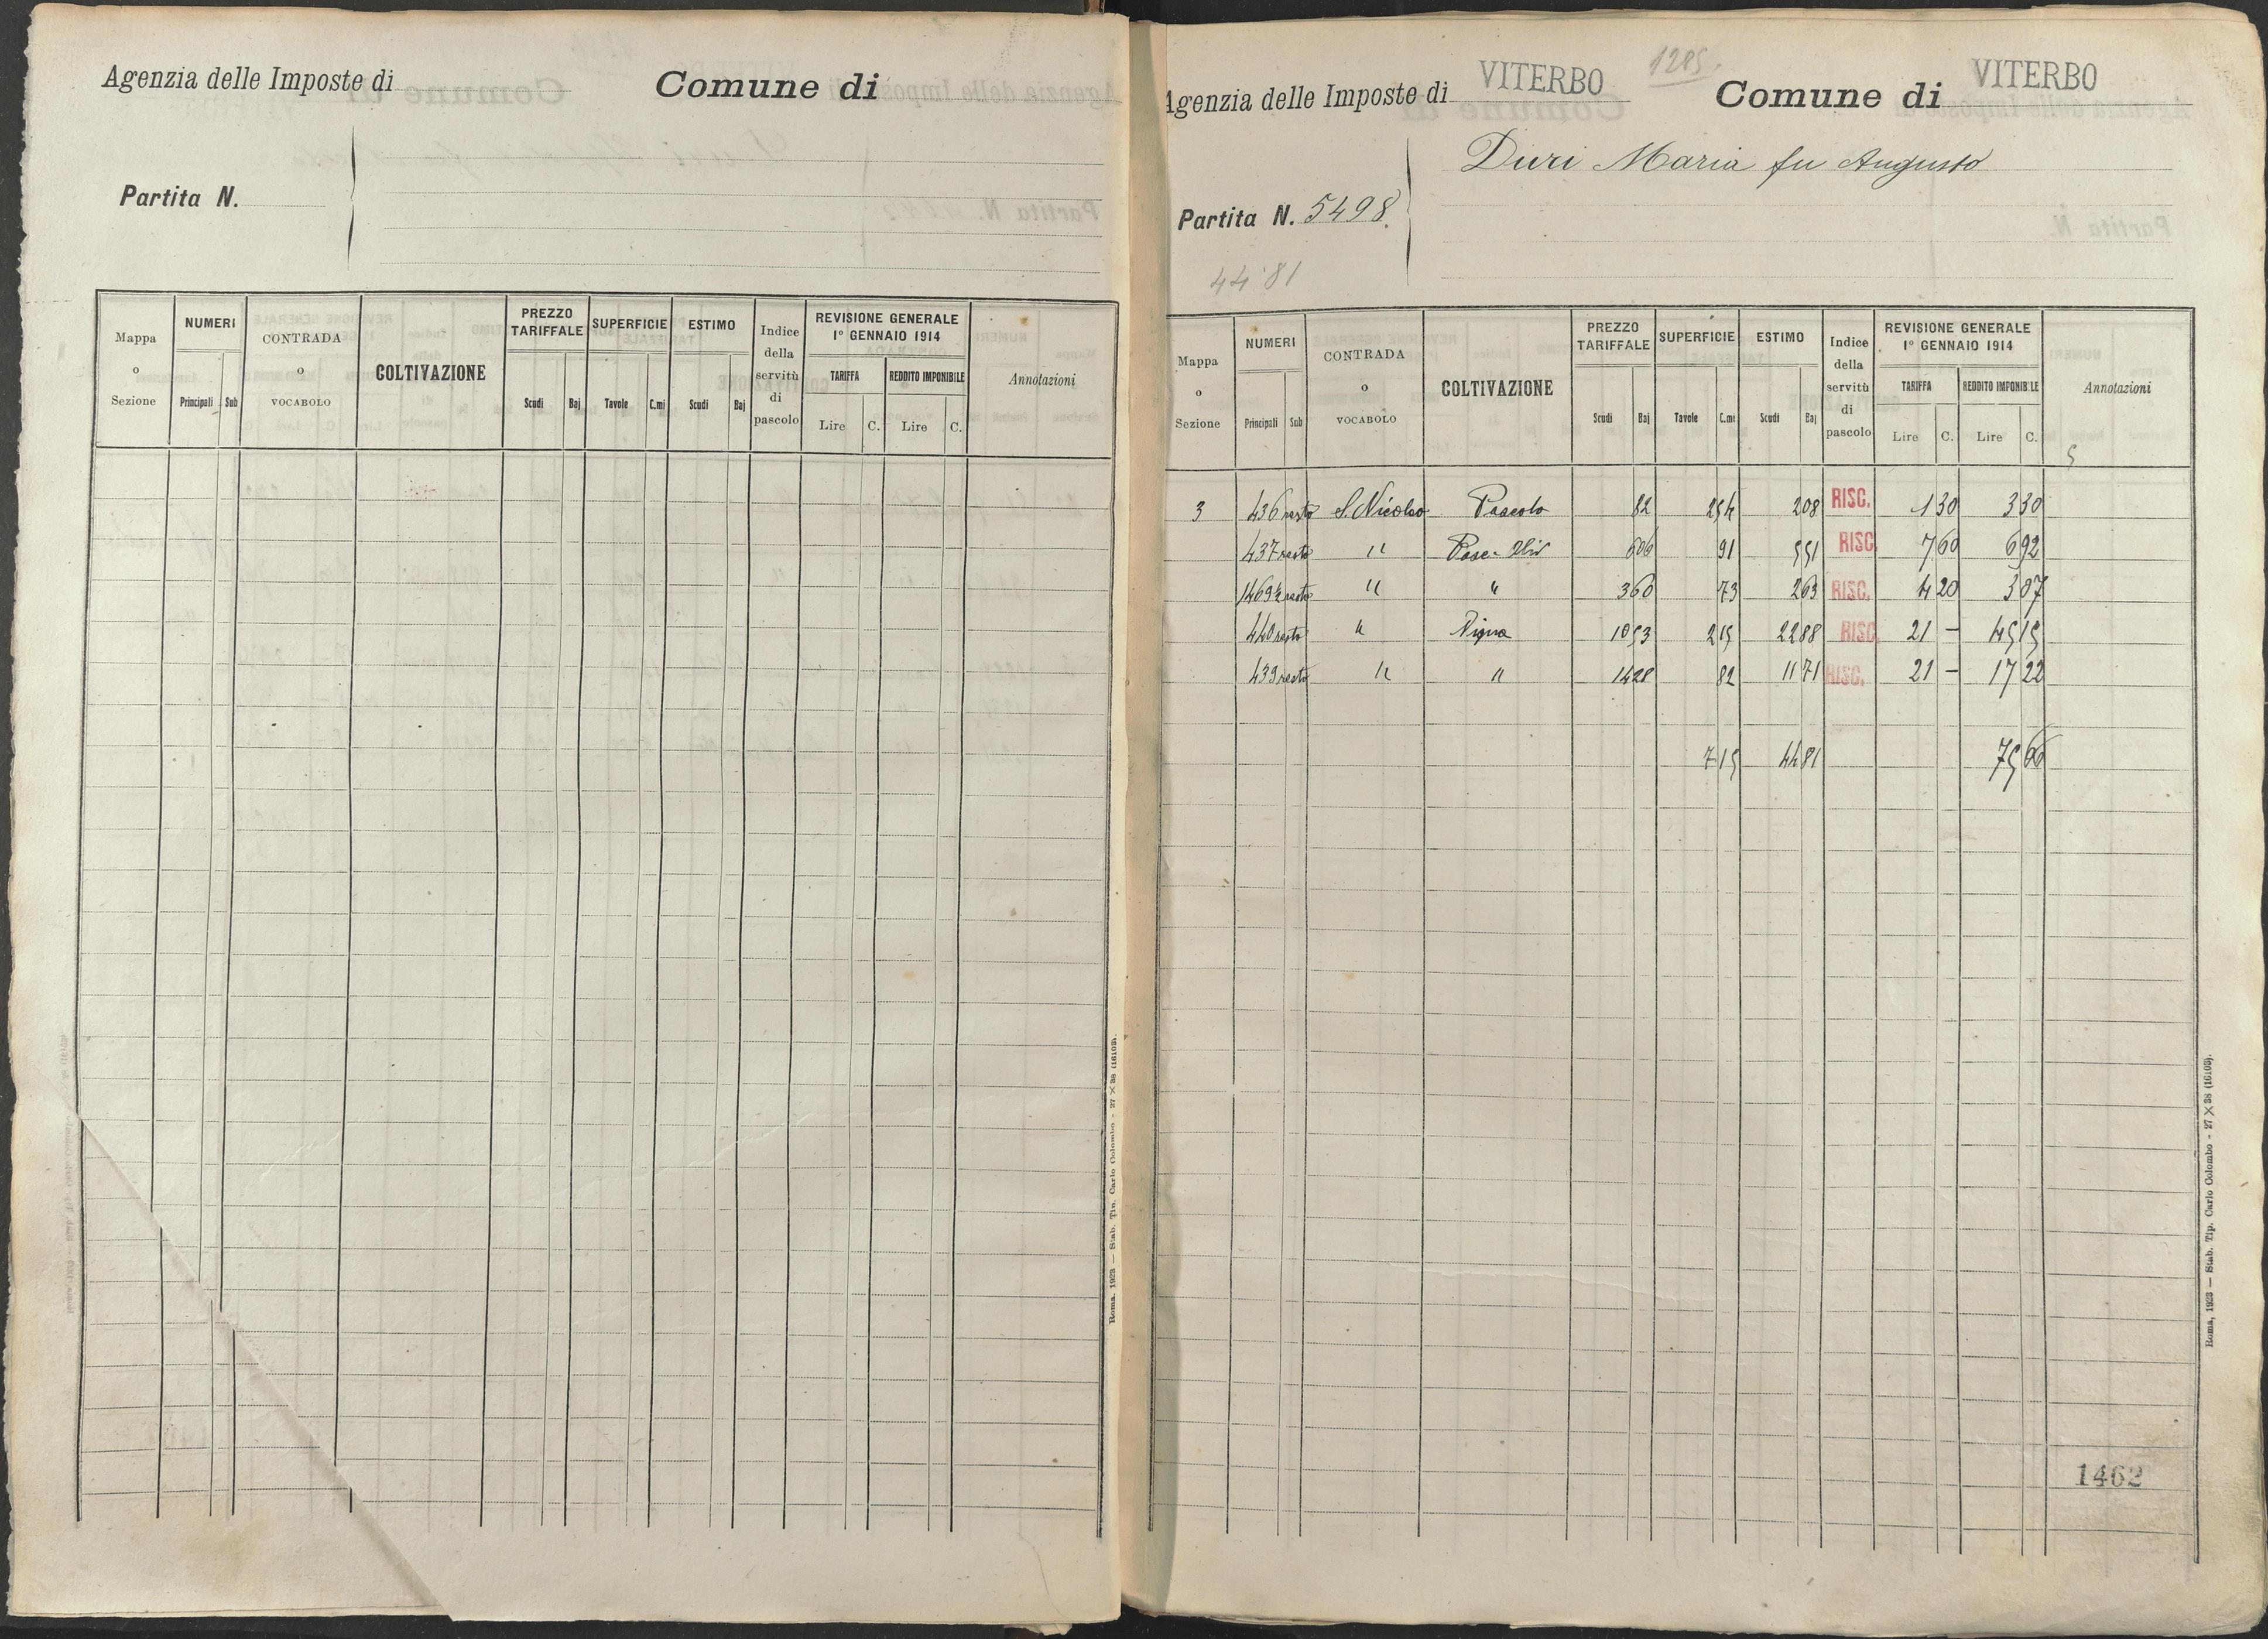 Agenzia delle Imposte di Comune di
Partita N.
Mappa o Sezione NUMERI Principali Sub CONTRADA o VOCABOLO COLTIVAZIONE PREZZO TARIFFALE Scudi Baj SUPERFICIE Tavole C.mi ESTIMO Scudi Baj Indice della servitù di pascolo REVISIONE GENERALE 1° GENNAIO 1914 TARIFFA Lire C. REDDITO IMPONIBILE Lire C. Annotazioni
Roma, 1923 — Stab. Tip. Carlo Colombo - 27 × 38 (16103).
1285.
Agenzia delle Imposte di VITERBO Comune di VITERBO
Duri Maria fu Augusto
Partita N. 5498
44'81
Mappa o Sezione NUMERI Principali Sub CONTRADA o VOCABOLO COLTIVAZIONE PREZZO TARIFFALE Scudi Baj SUPERFICIE Tavole C.mi ESTIMO Scudi Baj Indice della servitù di pascolo REVISIONE GENERALE 1° GENNAIO 1914 TARIFFA Lire C. REDDITO IMPONIBILE Lire C. Annotazioni
5
3 436 resto S. Nicolao Pascolo 82 2 54 2 08 RISC. 1 30 3 30
437 resto " Pasc. Oliv 6 06 91 5 51 RISC. 7 60 6 92
1469½ resto " " 3 60 73 2 63 RISC. 4 20 3 07
440 resto " Vigna 10 53 2 15 22 88 RISC. 21 — 45 15
439 resto " " 14 28 82 11 71 RISC. 21 — 17 22
7 15 44 81 75 66
1462
Roma, 1923 — Stab. Tip. Carlo Colombo - 27 × 38 (16103).